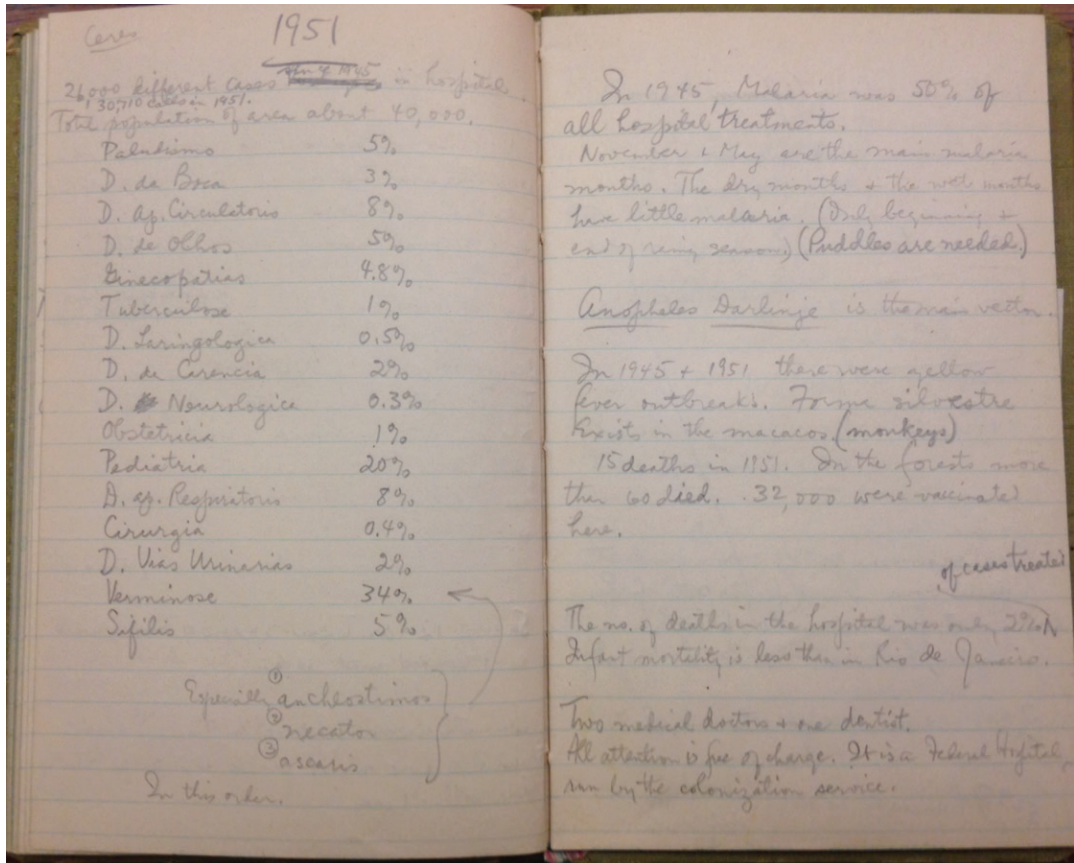 Ceres
1951
since 1945
26,000 different cases in hospital.
130,710 calls in 1951.
Total population of area about 40,000.
Paludismo 5%
D. da Boca 3%
D. Ap. Circulatorio 8%
D. de Olhos 5%
Ginecopatias 4.8%
Tuberculose 1%
D. Laringologica 0.5%
D. de Carencia 2%
D. Neurologica 0.3%
Obstetricia 1%
Pediatria 20%
D. ap. Respiratorio 8%
Cirurgia 0.4%
D. Vias Urinarias 2%
Verminose 34%
Sifilis 5%
Especially ① anchlostimos
② necator
③ ascaris
In this order.
In 1945, Malaria was 50% of
all hospital treatments.
November & May are the main malaria
months. The dry months + the wet months
have little malaria. (Only beginning +
end of rainy season.) (Puddles are needed.)
Anopheles Darlinje is the main vector.
In 1945 + 1951 there were yellow
fever outbreaks. Forma silvestre
Exists in the macacos (monkeys)
15 deaths in 1951. In the forests more
than 60 died. 32,000 were vaccinated
here.
of cases treated
The no. of deaths in the hospital was only 2%
Infant mortality is less than in Rio de Janeiro.
Two medical doctors + one dentist.
All attention is free of charge. It is a Federal Hospital,
run by the colonization service.